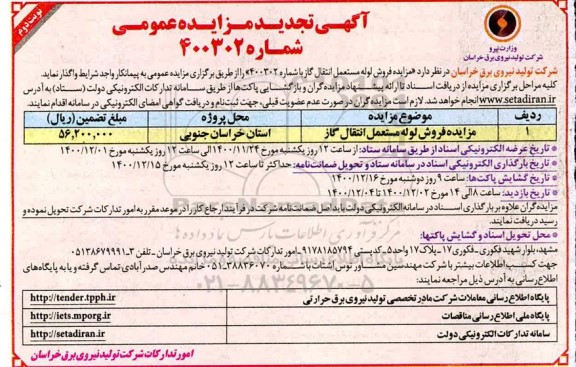 نوبت دوم
آگهی تجدید مزایده عمومی
شماره ۴۰۰۳۰۲
وزارت نیرو
شرکت تولید نیروی برق خراسان
شرکت تولید نیروی برق خراسان در نظر دارد «مزایده فروش لوله مستعمل انتقال گاز با شماره ۴۰۰۳۰۲» را از طریق برگزاری مزایده عمومی به پیمانکار واجد شرایط واگذار نماید
کلیه مراحل برگزاری مزایده از دریافت اسناد تا ارائه پیشنهاد مزایده گران و بازگشایی پاکت‌ها از طریق سامانه تدارکات الکترونیکی دولت (ستاد) به آدرس
www.setadiran.ir انجام خواهد شد. لازم است مزایده گران در صورت عدم عضویت قبلی، جهت ثبت نام و دریافت گواهی امضای الکترونیکی در سامانه اقدام نمایند.
ردیف موضوع مزایده محل پروژه مبلغ تضمین (ریال)
۱ مزایده فروش لوله مستعمل انتقال گاز استان خراسان جنوبی ۵۶,۲۰۰,۰۰۰
* تاریخ عرضه الکترونیکی اسناد از طریق سامانه ستاد: از ساعت ۱۲ روز یکشنبه مورخ ۱۴۰۰/۱۱/۲۴ الی ساعت ۱۲ روز یکشنبه مورخ ۱۴۰۰/۱۲/۰۱
* تاریخ بارگذاری الکترونیکی اسناد در سامانه ستاد و تحویل ضمانت‌نامه: حداکثر تا ساعت ۱۲ روز یکشنبه مورخ ۱۴۰۰/۱۲/۱۵
* تاریخ گشایش پاکت‌ها: ساعت ۹ روز دوشنبه مورخ ۱۴۰۰/۱۲/۱۶
* تاریخ بازدید: ساعت ۸ الی ۱۴ مورخ ۱۴۰۰/۱۲/۰۲ تا ۱۴۰۰/۱۲/۰۴
مزایده گران علاوه بر بارگذاری اسناد در سامانه الکترونیکی دولت باید اصل ضمانت نامه شرکت در فرآیند ارجاع کار را در موعد مقرر به امور تدارکات شرکت تحویل نموده و
رسید دریافت نمایند.
* محل تحویل اسناد و گشایش پاکتها:
مشهد، بلوار شهید فکوری - فکوری ۱۷ - پلاک ۱۷ واحد ۵ - کد پستی ۹۱۷۸۱۸۵۷۹۴ - امور تدارکات شرکت تولید نیروی برق خراسان - تلفن ۳-۰۵۱۳۸۶۷۹۹۹۱
جهت کسب اطلاعات بیشتر با شرکت مهندسین مشاور توس اشتات با شماره ۳۸۸۳۶۰۷۰-۰۵۱ خانم مهندس صدرآبادی تماس گرفته و یا به پایگاه‌های
اطلاع رسانی به آدرس ذیل مراجعه نمایند:
پایگاه اطلاع رسانی معاملات شرکت مادر تخصصی تولید نیروی برق حرارتی http://tender.tpph.ir
پایگاه ملی اطلاع رسانی مناقصات http://iets.mporg.ir
سامانه تدارکات الکترونیکی دولت http://setadiran.ir
امور تدارکات شرکت تولید نیروی برق خراسان
۰۲۱-۸۸۳۴۹۶۷۰-۵